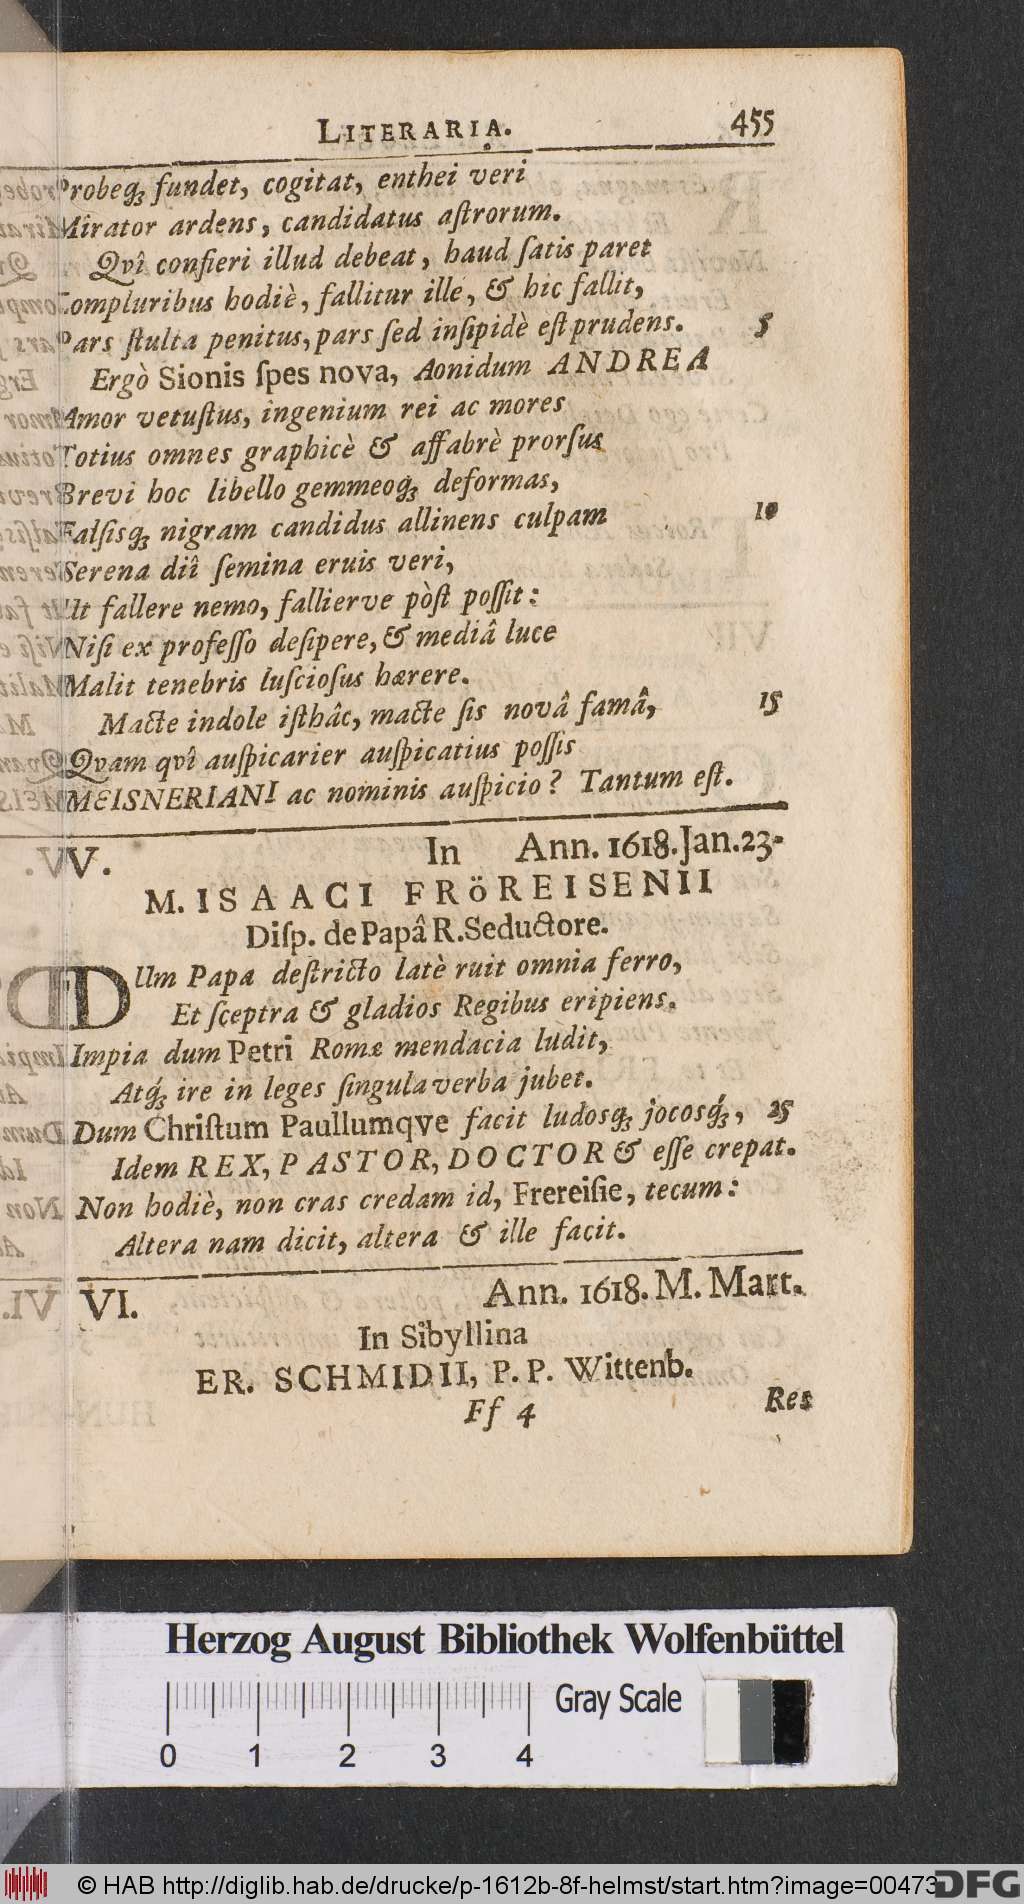 LITERARIA. 455
Probeq́ꝫ fundet, cogitat, enthei veri
Mirator ardens, candidatus aſtrorum.
Qvî confieri illud debeat, haud ſatis paret
Compluribus hodiè, fallitur ille, & hic fallit,
Pars ſtulta penitus, pars ſed inſipidè eſt prudens. 5
Ergò Sionis ſpes nova, Aonidum ANDREA
Amor vetuſtus, ingenium rei ac mores
Totius omnes graphicè & affabrè prorſus
Brevi hoc libello gemmeoq́ꝫ deformas,
Falſisq́ꝫ nigram candidus allinens culpam 10
Serena diî ſemina eruis veri,
Ut fallere nemo, fallierve pòſt poſſit:
Niſi ex profeſſo deſipere, & mediâ luce
Malit tenebris luſcioſus hærere.
Macte indole iſthâc, macte ſis novâ famâ, 15
Qvam qvî auſpicarier auſpicatius poſſis
MEISNERIANI ac nominis auſpicio? Tantum eſt.
V. In Ann. 1618. Jan. 23.
M. ISAACI FRÖREISENII
Diſp. de Papâ R. Seductore.
DUm Papa deſtricto latè ruit omnia ferro,
Et ſceptra & gladios Regibus eripiens.
Impia dum Petri Romæ mendacia ludit,
Atq́ꝫ ire in leges ſingula verba jubet.
Dum Chriſtum Paullumqve facit ludosq́ꝫ jocosq́ꝫ, 25
Idem REX, PASTOR, DOCTOR & eſſe crepat.
Non hodiè, non cras credam id, Frereiſie, tecum:
Altera nam dicit, altera & ille facit.
VI. Ann. 1618. M. Mart.
In Sibyllina
ER. SCHMIDII, P. P. Wittenb.
Ff 4 Res
Herzog August Bibliothek Wolfenbüttel
Gray Scale
0 1 2 3 4
© HAB http://diglib.hab.de/drucke/p-1612b-8f-helmst/start.htm?image=00473
DFG